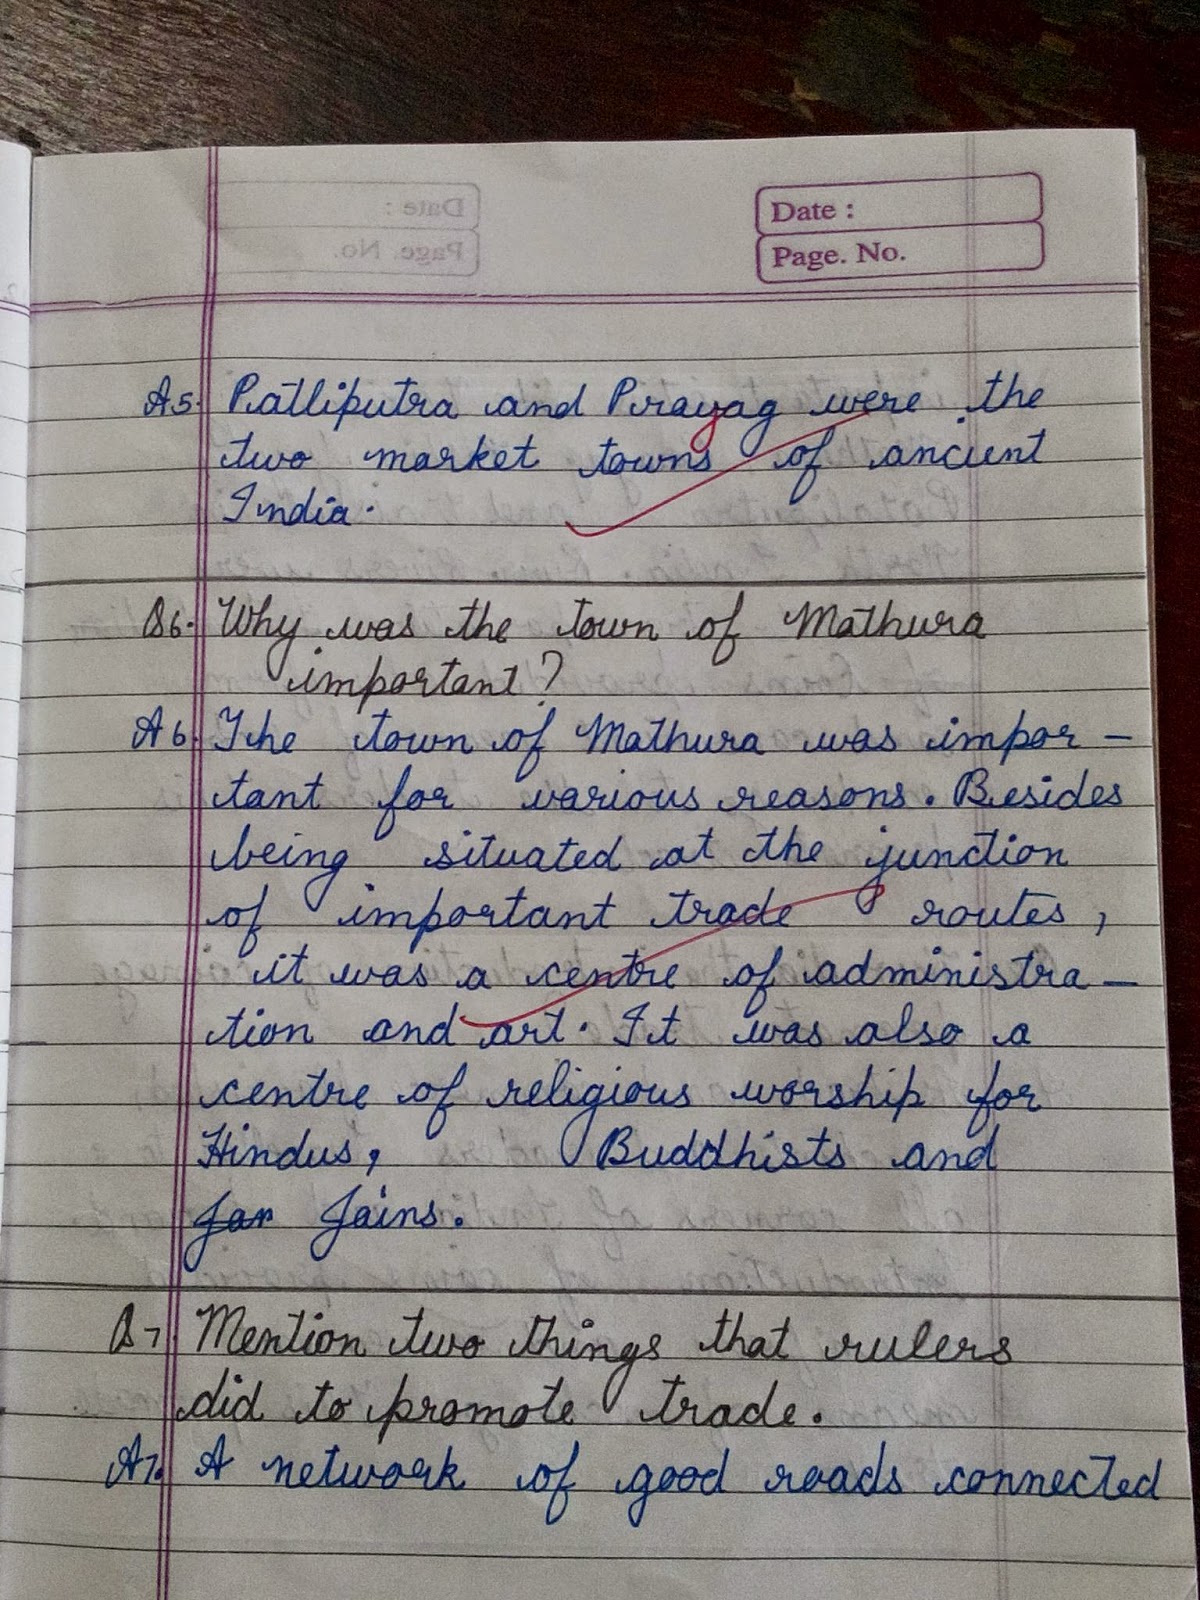 Date :
Page. No.
A5. Patliputra and Prayag were the
two market towns of ancient
India.
Q6. Why was the town of Mathura
important?
A6. The town of Mathura was impor-
tant for various reasons. Besides
being situated at the junction
of important trade routes,
it was a centre of administra-
tion and art. It was also a
centre of religious worship for
Hindus, Buddhists and
Jar Jains.
Q7. Mention two things that rulers
did to promote trade.
A7. A network of good roads connected